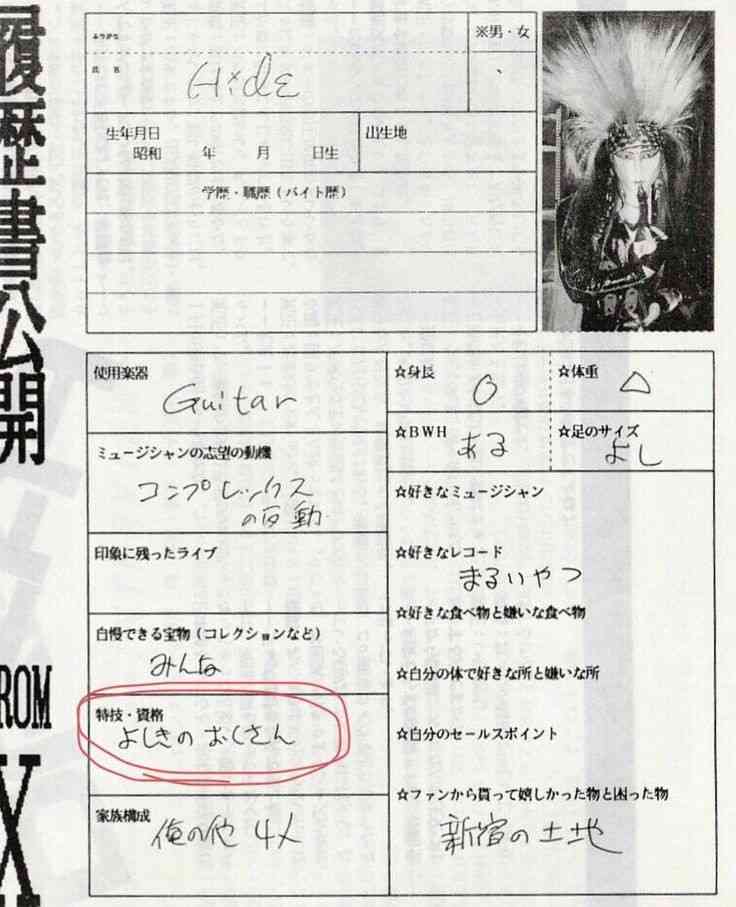 履歴書公開
ROM
X
ふりがな
氏 名
Hide
※男・女
生年月日
昭和 年 月 日生
出生地
学歴・職歴（バイト歴）
使用楽器
Guitar
ミュージシャンの志望の動機
コンプレックス
の反動
印象に残ったライブ
自慢できる宝物（コレクションなど）
みんな
特技・資格
よしきの おくさん
家族構成
俺の他 4人
☆身長
○
☆体重
△
☆BWH
ある
☆足のサイズ
よし
☆好きなミュージシャン
☆好きなレコード
まるいやつ
☆好きな食べ物と嫌いな食べ物
☆自分の体で好きな所と嫌いな所
☆自分のセールスポイント
☆ファンから貰って嬉しかった物と困った物
新宿の土地